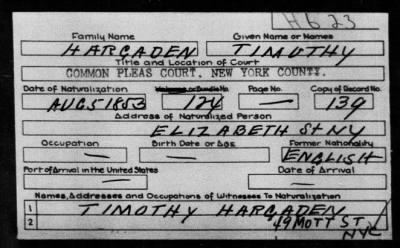 H623
Family Name Given Name or Names
HARGADEN TIMOTHY
Title and Location of Court
COMMON PLEAS COURT. NEW YORK COUNTY.
Date of Naturalization or Bundle No. Page No. Copy of Record No.
AUG 5 1853 124 — 139
Address of Naturalized Person
ELIZABETH St NY
Occupation Birth Date or Age Former Nationality
— — ENGLISH
Port of Arrival in the United States Date of Arrival
— —
Names, Addresses and Occupations of Witnesses To Naturalization
1 TIMOTHY HARGADEN
2 49 MOTT ST
NYC